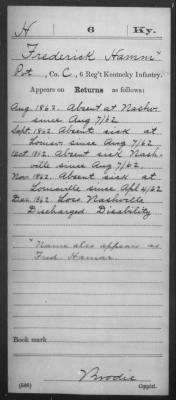 H 6 Ky.
Frederick Hamm"
Pvt, Co. C, 6 Reg't Kentucky Infantry.
Appears on
Returns as follows:
Aug. 1862. Absent at Nashv.
since Aug 7/62
Sept. 1862. Absent sick at
Louisv. since Aug 7/62
Oct 1862. Absent sick Nash-
ville since Aug 7/62
Nov. 1862. Absent sick at
Louisville since Apl 4/62
Dec. 1862. Loss. Nashville
Discharged Disability
" Name also appears as
Fred. Hamar.
Book mark
Brodie
(546) Copyist.